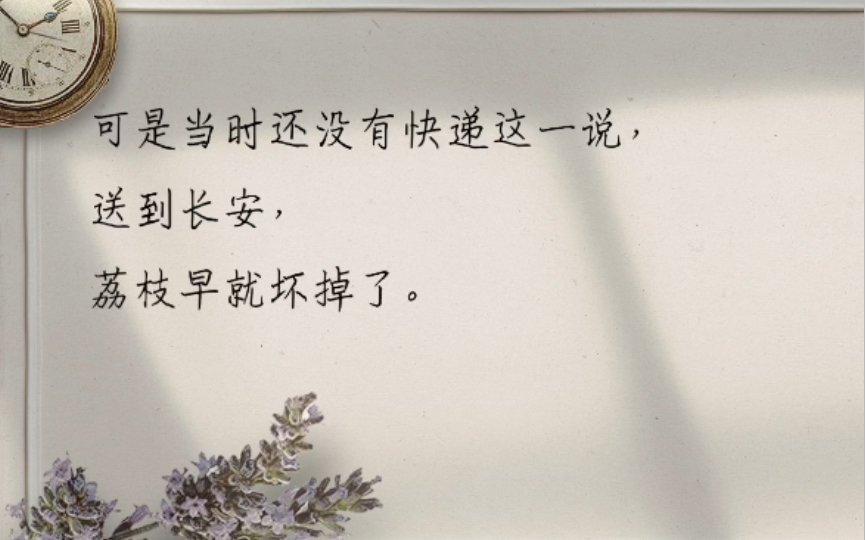 可是当时还没有快递这一说，
送到长安，
荔枝早就坏掉了。